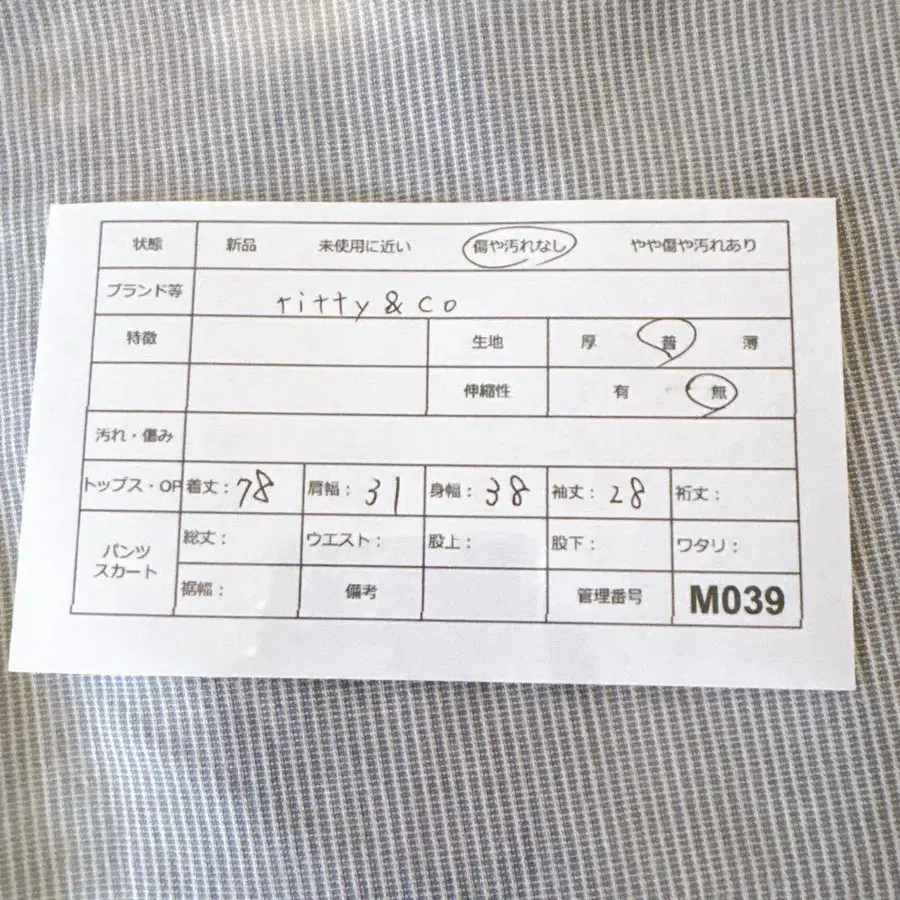 状態 新品 未使用に近い 傷や汚れなし やや傷や汚れあり
ブランド等 ritty & co
特徴 生地 厚 普 薄
伸縮性 有 無
汚れ・傷み
トップス・OP 着丈：78 肩幅：31 身幅：38 袖丈：28 裄丈：
パンツ スカート 総丈： ウエスト： 股上： 股下： ワタリ：
裾幅： 備考 管理番号 M039